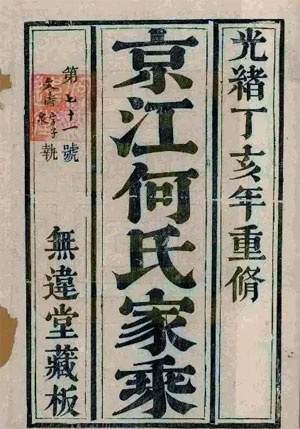 光緒丁亥年重脩
京江何氏家乘
第七十一號
執
無違堂藏板